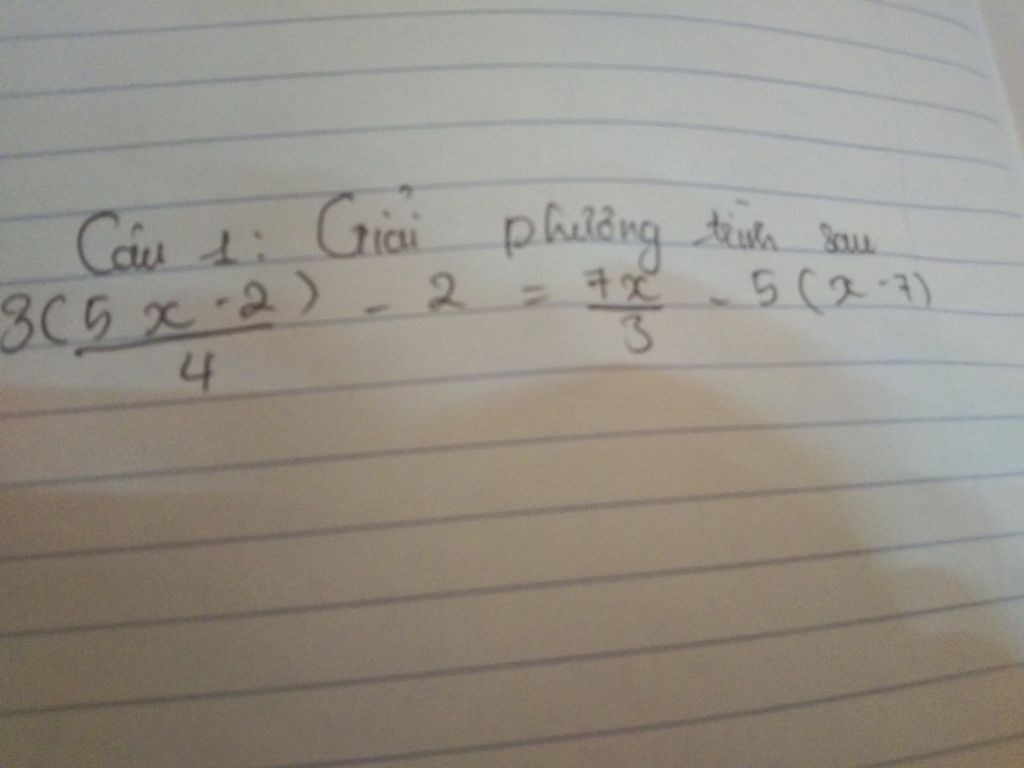 Câu 1: Giải phương trình sau
3(5x-2)/4 - 2 = 7x/3 - 5(x-7)